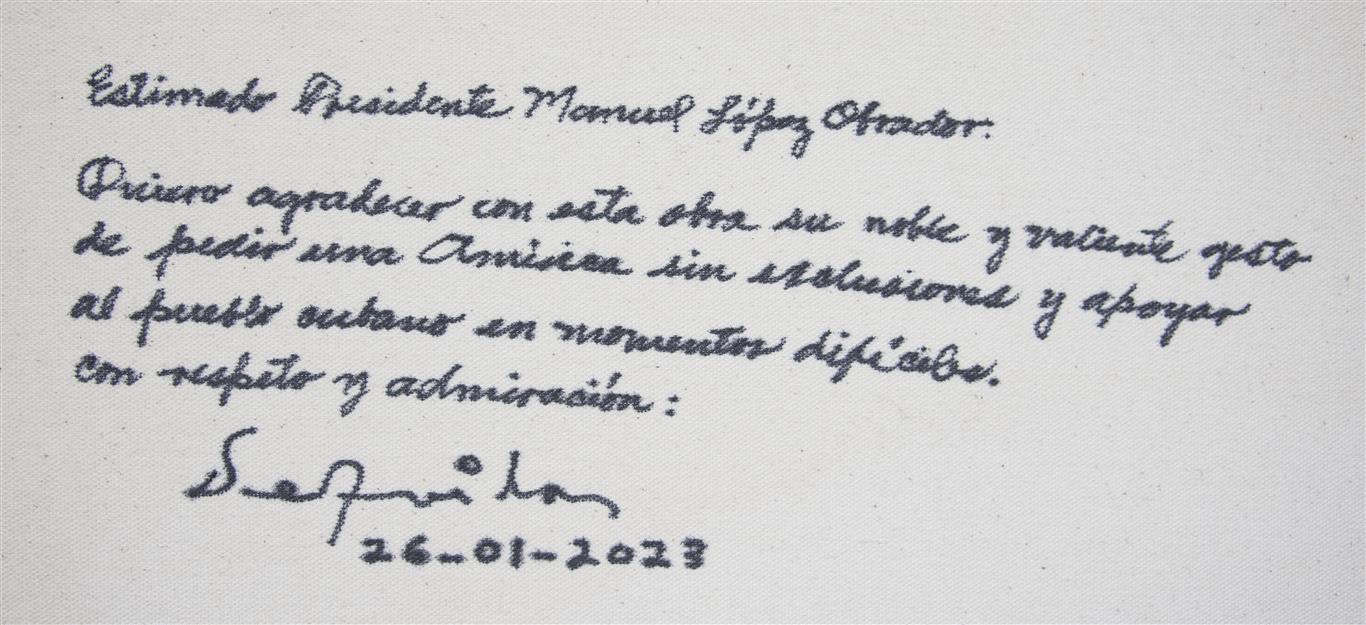 Estimado Presidente Manuel López Obrador.
Quiero agradecer con esta obra su noble y valiente gesto
de pedir una América sin exclusiones y apoyar
al pueblo cubano en momentos difíciles.
con respeto y admiración:
26-01-2023